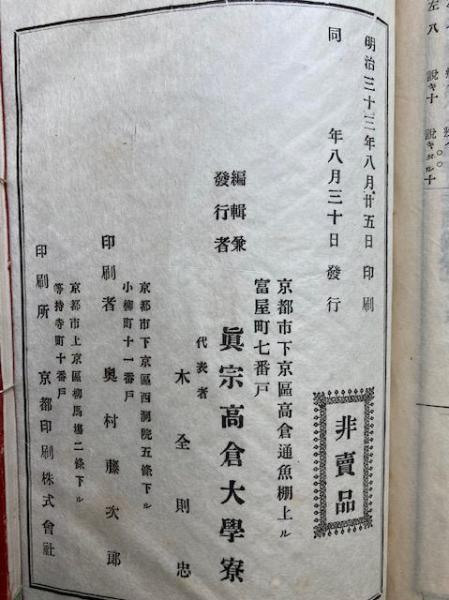 明治三十三年八月廿五日印刷
同年八月三十日發行
非賣品
編輯兼
發行者
京都市下京區高倉通魚棚上ル
富屋町七番戸
眞宗高倉大學寮
代表者
木全則忠
京都市下京區西洞院五條下ル
小柳町十一番戸
印刷者 奥村藤次郎
京都市上京區柳馬塲二條下ル
等持寺町十番戸
印刷所 京都印刷株式會社